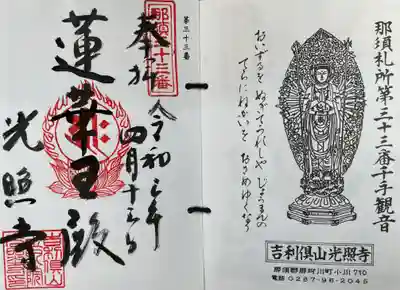 那須札所第三十三番千手観音
おいずるを ぬぎてうれしや じょうまんの
てらにねがいを おさめゆくなり
吉利倶山光照寺
那須郡那珂川町小川710
電話 0287-96-2045
第三十三番
那須三十三番
奉拝 令和 年
四月十三日
蓮華王殿
光照寺